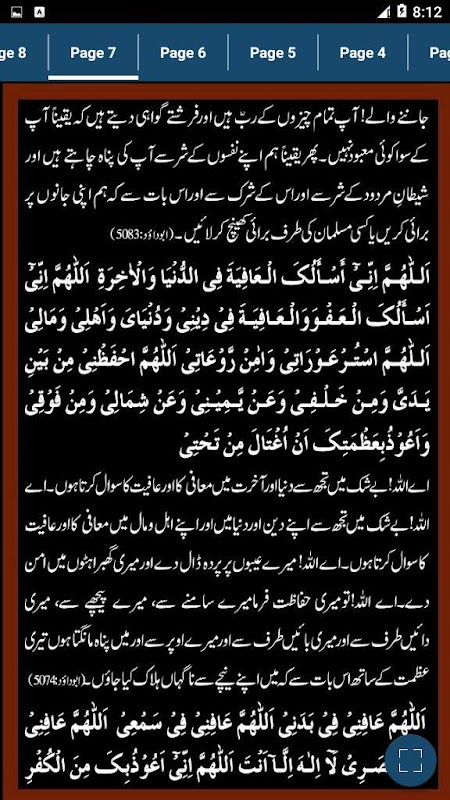 8:12
ge 8 Page 7 Page 6 Page 5 Page 4 Pag
جاننے والے! آپ تمام چیزوں کے ربّ ہیں اور فرشتے گواہی دیتے ہیں کہ یقیناً آپ
کے سوا کوئی معبود نہیں۔ پھر یقیناً ہم اپنے نفسوں کے شر سے آپ کی پناہ چاہتے ہیں اور
شیطانِ مردود کے شر سے اور اس کے شرک سے اور اس بات سے کہ ہم اپنی جانوں پر
برائی کریں یا کسی مسلمان کی طرف برائی کھینچ کر لائیں۔ (ابوداؤد:5083)
اَللّٰهُمَّ اِنِّیْٓ أَسْأَلُکَ الْعَافِیَةَ فِی الدُّنْیَا وَالْاٰخِرَةِ اَللّٰهُمَّ اِنِّیْٓ
اَسْأَلُکَ الْعَفْوَ وَالْعَافِیَةَ فِیْ دِیْنِیْ وَدُنْیَایَ وَاَهْلِیْ وَمَالِیْ
اَللّٰهُمَّ اسْتُرْ عَوْرَاتِیْ وَاٰمِنْ رَّوْعَاتِیْ اَللّٰهُمَّ احْفَظْنِیْ مِنْ بَیْنِ
یَدَیَّ وَمِنْ خَلْفِیْ وَعَنْ یَّمِیْنِیْ وَعَنْ شِمَالِیْ وَمِنْ فَوْقِیْ
وَاَعُوْذُ بِعَظْمَتِکَ اَنْ اُغْتَالَ مِنْ تَحْتِیْ
اے اللہ! بے شک میں تجھ سے دنیا اور آخرت میں معافی کا اور عافیت کا سوال کرتا ہوں۔ اے
اللہ! بے شک میں تجھ سے اپنے دین اور دنیا میں اور اپنے اہل و مال میں معافی کا اور عافیت
کا سوال کرتا ہوں۔ اے اللہ! میرے عیبوں پر پردہ ڈال دے اور میری گھبراہٹوں میں امن
دے۔ اے اللہ! تو میری حفاظت فرما میرے سامنے سے، میرے پیچھے سے، میری
دائیں طرف سے اور میری بائیں طرف سے اور میرے اوپر سے اور میں پناہ مانگتا ہوں تیری
عظمت کے ساتھ اس بات سے کہ میں اپنے نیچے سے ناگہاں ہلاک کیا جاؤں۔ (ابوداؤد:5074)
اَللّٰهُمَّ عَافِنِیْ فِیْ بَدَنِیْ اَللّٰهُمَّ عَافِنِیْ فِیْ سَمْعِیْ اَللّٰهُمَّ عَافِنِیْ
صَرِیْ لَآ اِلٰهَ اِلَّآ اَنْتَ اَللّٰهُمَّ اِنِّیْٓ اَعُوْذُ بِکَ مِنَ الْکُفْرِ